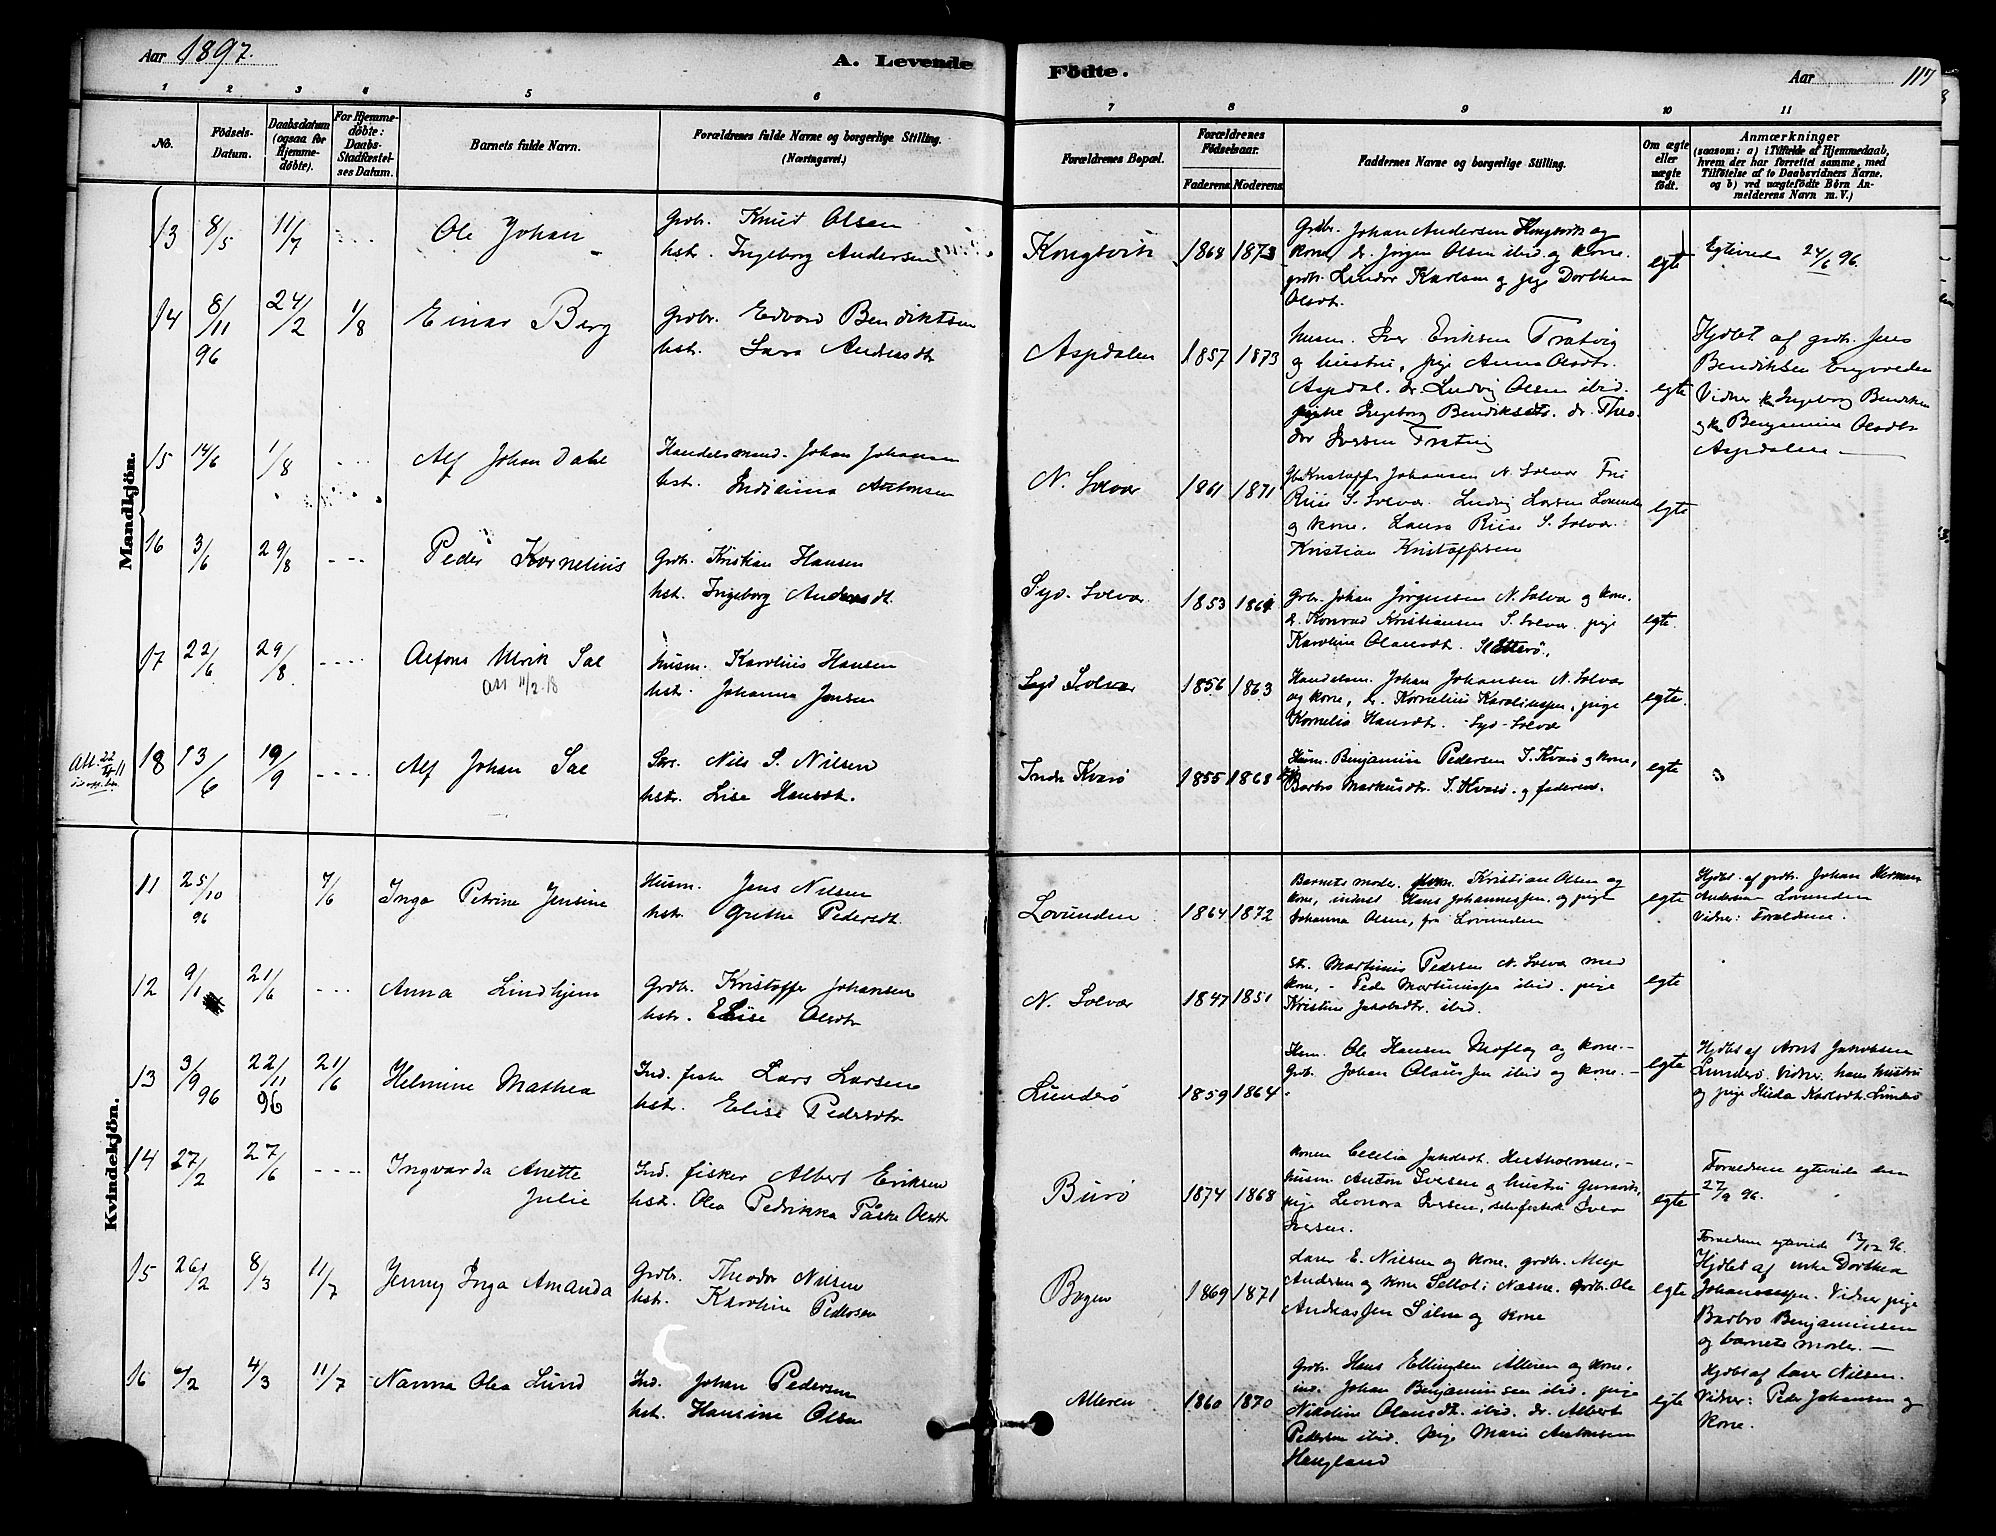 Aar 1897.
A. Levende
Födte.
Aar 117
1 2 3 4 5 6 7 8 9 10 11
No.
Födsels-Datum.
Daabsdatum (ogsaa for Hjemme-döbte).
For Hjemme-döbte: Daabs-Stadfæstel-ses Datum.
Barnets fulde Navn.
Forældrenes fulde Navne og borgerlige Stilling. (Næringsvei.)
Forældrenes Bopæl.
Forældrenes Födselsaar.
Faderens. Moderens.
Faddernes Navne og borgerlige Stilling.
Om ægte eller uægte födt.
Anmærkninger
(saasom: a) i Tilfælde af Hjemmedaab,
hvem der har forrettet samme, med
Tilföielse af to Daabsvidners Navne.
og b) ved uægtefödte Börn An-
melderens Navn m. V.)
Mandkjön.
13 8/5 11/7 Ole Johan
Grdbr. Knud Olsen
hst. Ingeborg Andersen
Kongsvik 1868 1873
Grdbr. Johan Andersen Kongsvik og
kone, dr. Jörgen Olsen ibid. og kone.
grdbr. Lendor Karlsen og pige Dorthea
Olsdt.
egte
Egteviede 24/6 96.
14 8/11 96 24/2 1/8 Einar Berg
Grdbr. Edvard Bendiktsen
hst. Sara Andersdt.
Aspdalen 1857 1873
husm. Iver Eriksen Tratvig
og hustru, pige Anna Olsdtr.
Aspdal. dr. Ludvig Olsen ibid.
pige Ingeborg Bendiksdtr. dr. Theo-
dor Iversen Tratvig
egte
Hjdbt af grdbr. Jens
Bendiksen
Vidner Ingeborg Bendiksen
og Benjamine Olsdtr.
Aspdalen
15 14/6 1/8 Alf Johan Dahl
Handelsmand Johan Johansen
hst. Indianna Antonsen
N. Solvær 1861 1871
Kristoffer Johansen N. Solvær
Riise S. Solvær. Ludvig Larsen Lovunden
og kone. Laura Riise S. Solvær.
Kristian Kristoffersen
egte
16 3/6 29/8 Peder Kornelius
Grdbr. Kristian Hansen
hst. Ingeborg Andersdt.
Syd. Solvær 1853 1861
Grbr. Johan Jörgensen N. Solvær og kone.
dr. Konrad Kristiansen S. Solvær. pige
Karoline Olausdt.
egte.
17 22/6 29/8 Alfons Ulrik Sae
Att 11/2-18
husm. Karolius Hansen
hst. Johanna Jensen
Syd Solvær 1856 1863
Handelsm. Johan Johansen N. Solvær
og kone, dr. Kornelius Karoliussen, pige
Kornelia Hansdt. Syd-Solvær
egte.
Att. 22/4 11
18 13/6 19/9 Alf Johan Sae
Str. Nils S. Nilsen
hstr. Lise Hansdt.
Indr Kvarö 1855 1868
Husm. Benjamin Pedersen I. Kvarö og kone,
Barbro Markusdtr. I. Kvarö. og faderen.
egte
Kvindekjön.
11 25/10 96 7/6 Inga Petrine Jensine
Husm. Jens Nilsen
hst. Grethe Pedersdt.
Lovunden 1864 1872
Barnets moder. Kristian Olsen og
kone, inderst Hans Johannessen. og pige
Johanna Olsen, fra Lovunden
egte
Hjdbt. af grdbr. Johan Herman
Andersen Lovunden
Vidner: Forældrene.
12 9/1 21/6 Anna Lindhjem
Grdbr. Kristoffer Johansen
hstr. Elise Olsdtr.
N. Solvær 1847 1851
Str. Martinus Pedersen N. Solvær med
kone, - Peder Martinussen ibid. pige
Kristine Jakobsdtr. ibid.
egte
13 3/9 96 22/11 96 21/6 Helmine Mathea
Ind. fisker Lars Larsen
hst. Elise Pedersdtr.
Lunderö 1859 1864
Husm. Ole Hansen Moflag og kone.-
Grdb. Johan Olaussen ibid og kone.-
egte
Hjdbt af Arnt Jakobsen
Lunderö. Vidner: hans hustru
og pige Hilda Karlsdt. Lunderö
14 27/2 27/6 Ingvarda Anette
Julie
Ind. fisker Albert Eriksen
hst. Olea Pedrikka Påske Olsdtr
Burö 1874 1868
Konen Cecilia Jakobsdt. Hestholmen,-
husm Anton Iversen og hustru
pige Leonora Iversen, selvfostret Iver
Iversen.
egte
Forældrene egteviede den
27/9 96.
15 26/2 8/3 11/7 Jenny Inga Amanda
Grdbr. Theodor Nilsen
hst. Karoline Pedersen
Bogen 1869 1871
Larer E. Nilsen og kone. grdbr.
Andersen og kone Selvol i Næsne. grdbr. Ole
Andreassen Silna og kone
egte
Forældrene egteviede 13/12 96.
Hjdbt af enke Dorthea
Johannessen. Vidner pige
Barbro Benjaminsen
og barnets moder.
16 6/2 4/3 11/7 Nanna Olea Lund
Ind. Johan Pedersen
hst. Hansine Olsen
Alteren 1860 1870
Grdbr. Hans Ellingsen Alteren og kone.
ind. Johan Benjaminsen ibid. pige
Nikoline Olausdt. ibid. dr. Albert
Pedersen ibid. pige Marie Antonsen
Haugland
egte
Hjdbt af Larer Nilsen.
Vidner: Peder Johansen og
kone.